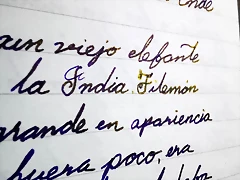 un viejo elefante
la India. Filemón
grande en apariencia
fuera poco, era